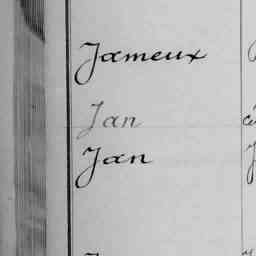 Jameux
Jan
Jan